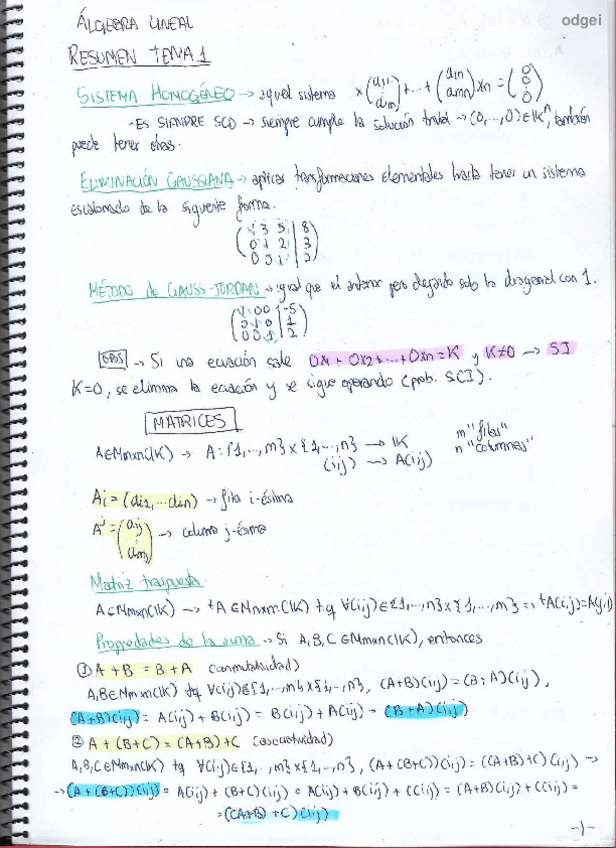 odgei
ÁLGEBRA LINEAL
RESUMEN TEMA 1
SISTEMA HOMOGÉNEO → aquel sistema x (a11 ⋮ am1) + ... + (a1n amn) xn = (0 0 0)
- ES SIEMPRE SCD → siempre cumple la solución trivial → (0,...,0) ∈ IKⁿ, también
puede tener otras.
ELIMINACIÓN GAUSSIANA → aplicar transformaciones elementales hasta tener un sistema
escalonado de la siguiente forma.
( 1 3 5 | 8
0 1 2 | 3
0 0 1 | 2 )
MÉTODO de GAUSS-JORDAN → igual que el anterior pero dejando solo la diagonal con 1.
( 1 0 0 | -5
0 1 0 | 1
0 0 1 | 2 )
OBS → Si una ecuación sale 0x1 + 0x2 + ... + 0xn = K y K≠0 → SI
K=0, se elimina la ecuación y se sigue operando (prob. SCI).
MATRICES
A∈Mmxn(IK) → A: {1,...,m} x {1,...,n} → IK m "filas"
(i,j) → A(i,j) n "columnas"
Ai = (ai1, ... ain) → fila i-ésima
Aʲ = (a1j ⋮ amj) → columna j-ésima
Matriz traspuesta
A∈Mmxn(IK) → ᵗA ∈ Mnxm(IK) tq ∀(i,j)∈{1,...,n}x{1,...,m} => ᵗA(i,j)=A(j,i)
Propiedades de la suma → Si A,B,C ∈Mmxn(IK), entonces
① A + B = B + A (conmutatividad)
A,B∈Mmxn(IK) tq ∀(i,j)∈{1,...,m}x{1,...,n}, (A+B)(i,j) = (B+A)(i,j),
(A+B)(i,j) = A(i,j) + B(i,j) = B(i,j) + A(i,j) = (B+A)(i,j)
② A + (B+C) = (A+B)+C (asociatividad)
A,B,C∈Mmxn(IK) tq ∀(i,j)∈{1,...,m}x{1,...,n}, (A+(B+C))(i,j) = ((A+B)+C)(i,j) →
→ (A+(B+C))(i,j) = A(i,j) + (B+C)(i,j) = A(i,j) + B(i,j) + C(i,j) = (A+B)(i,j) + C(i,j) =
= ((A+B)+C)(i,j)
-1-